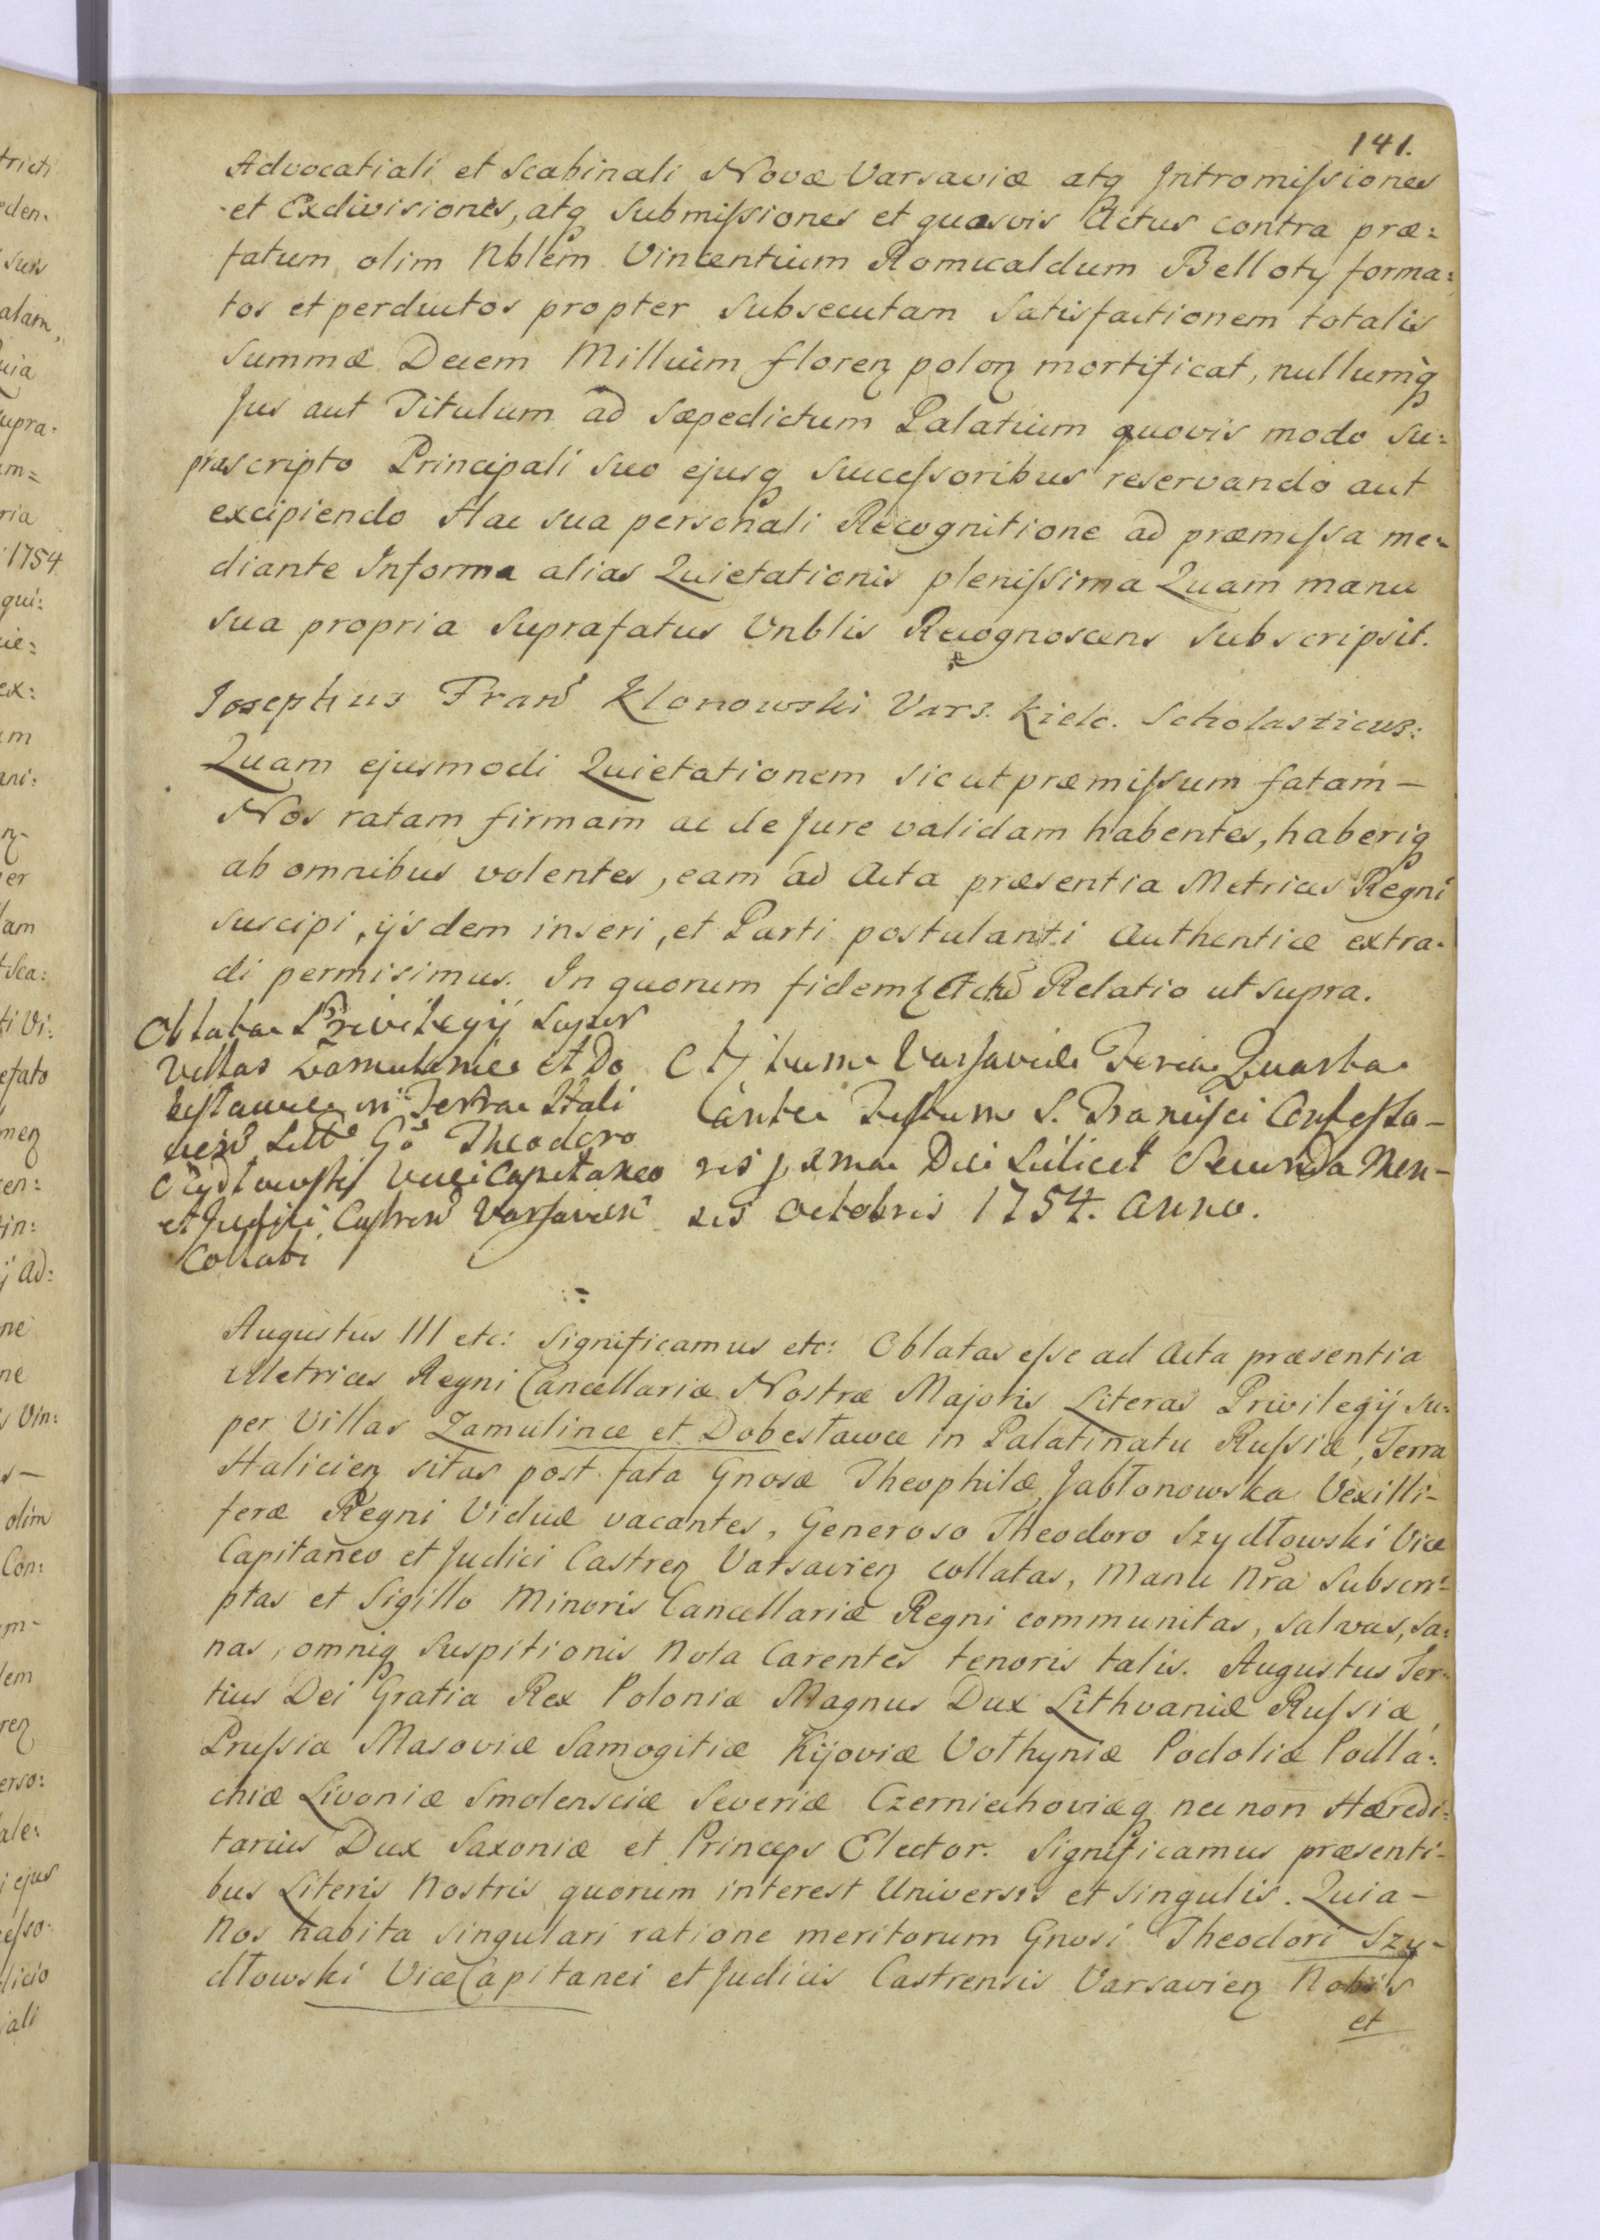 141.
Advocatiali et Scabinali Novæ Varsaviæ atq Intromissiones
et Exdivisiones, atq Submissiones et quasvis Actus contra præ:
fatum olim Nblem Vincentium Romualdum Belloty forma:
tos et perductos propter Subsecutam Satisfactionem totalis
Summæ Decem Millium florenz polonz mortificat, nullumq
Jus aut Titulum ad Sæpedictum Palatium quovis modo Su:
præscripto Principali Suo ejusq Successoribus reservando aut
excipiendo Hac sua personali Recognitione ad præmissa me-
diante Informa alias Quietationis plenissima Quam manu
sua propria Suprafatus Vnblis Recognoscens Subscripsit.
Josephus Klonowski Vars. Kielc. Scholasticus:
Quam ejusmodi Quietationem sicut præmissum fatam—
Nos ratam firmam ac de Jure validam habentes, haberiq
ab omnibus volentes, eam ad Acta præsentia Metrices Regni
suscipi, ijsdem inseri, et Parti postulanti Authentice extra-
di permisimus. In quorum fidem Relatio ut supra.
Oblata Privilegij Super
Villas Zamulince et Do
bestawce in Terra Hali
Theodoro
Szydłowski ViceCapitaneo
et Judici Castren Varsavien
Collati
Actum Varsaviæ Feria Quarta
ante Festum S. Francisci Confesso-
ris Die Scilicet Secunda Men-
sis Octobris 1754. Anno.
Augustus III etc: Significamus etc: Oblatas esse ad Acta præsentia
Metrices Regni Cancellariæ Nostræ Majoris Literas Privilegij Su:
per Villas Zamulince et Dobestawce in Palatinatu Russiæ, Terra
Halicienz sitas post fata Gnosæ Theophilæ Jabłonowska Vexilli-
feræ Regni Viduæ vacantes, Generoso Theodoro Szydłowski Vice
Capitaneo et Judici Castrenz Varsavienz collatas, Manu Nra Subscri-
ptas et Sigillo Minoris Cancellariæ Regni communitas, salvas, sa:
nas, omniq Suspitionis Nota Carentes tenoris talis. Augustus Ter-
tius Dei Gratia Rex Poloniæ Magnus Dux Lithvaniæ Russiæ,
Prussiæ Masoviæ Samogitiæ Kijoviæ Volhyniæ Podoliæ Podla:
chiæ Livoniæ Smolensciæ Severiæ Czerniechoviæq nec non Hæredi:
tarius Dux Saxoniæ et Princeps Elector. Significamus præsenti-
bus Literis Nostris quorum interest Universis et singulis. Quia—
Nos habita singulari ratione meritorum Gnosi Theodori Szy-
dłowski ViceCapitanei et Judicis Castrensis Varsavienz Nobis
et